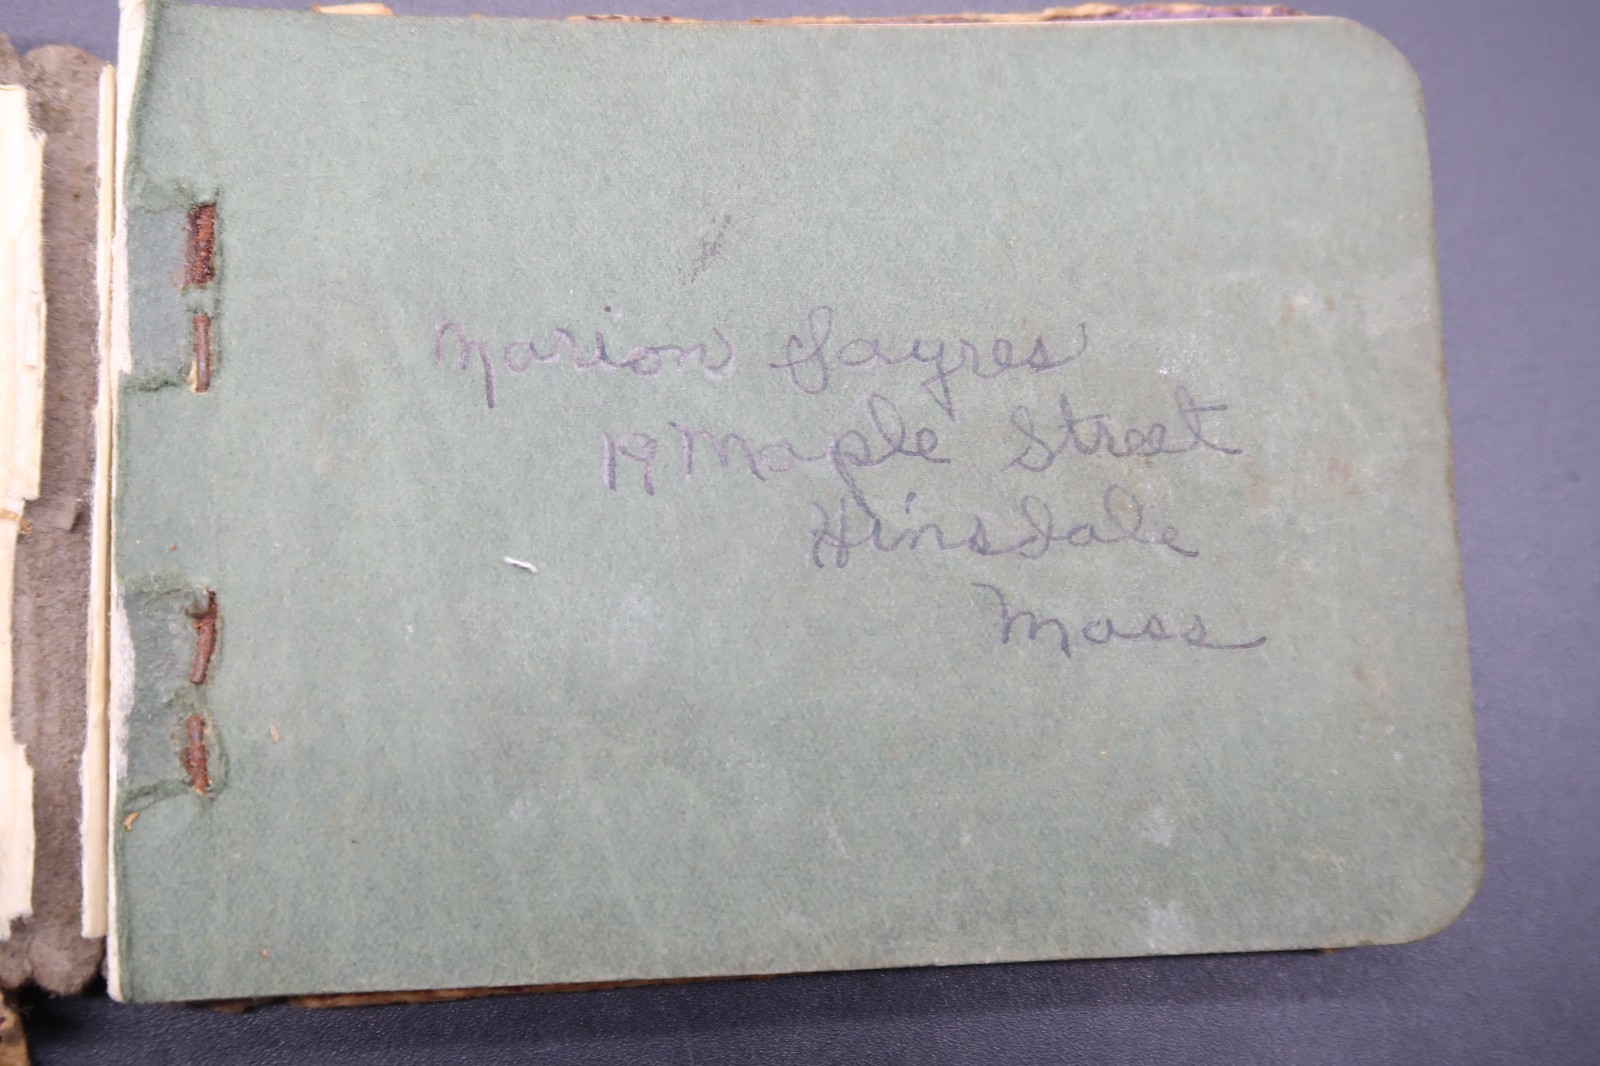 Marion Sayres
19 Maple Street
Hinsdale
Mass